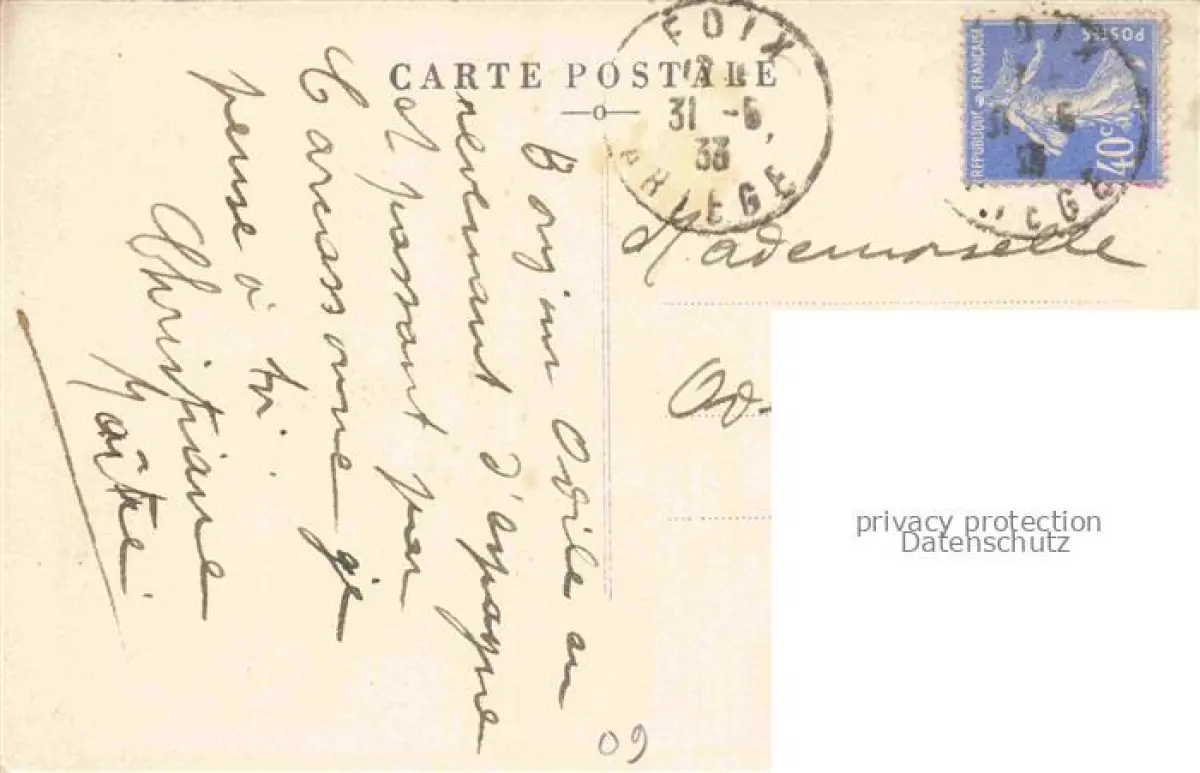 CARTE POSTALE
FOIX
31 -5
33
ARIEGE
REPUBLIQUE FRANÇAISE
POSTES
40c
Bonjour Odile en
revenant d'espagne
et passant par
Carcassonne je
pense à toi.
Christiane
Maïté
Mademoiselle
Od
privacy protection
Datenschutz
09